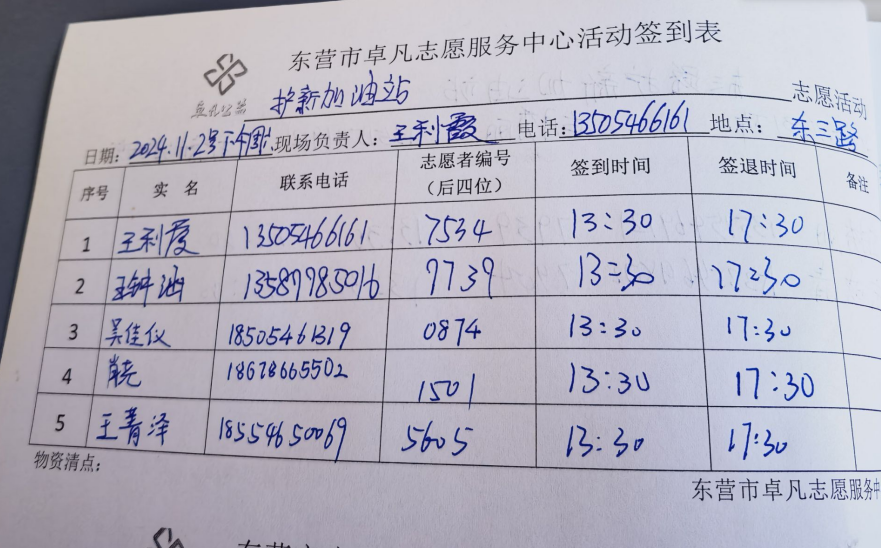 东营市卓凡志愿服务中心活动签到表
卓凡公益
护新加油站 志愿活动
日期: 2024.11.2号下午周六 现场负责人: 王利霞 电话: 13505466161 地点: 东三路
序号 实 名 联系电话 志愿者编号(后四位) 签到时间 签退时间 备注
1 王利霞 13505466161 7534 13:30 17:30
2 王钟涵 13587785016 7739 13:30 17:30
3 吴佳仪 18505461319 0874 13:30 17:30
4 18678665502 1501 13:30 17:30
5 王菁泽 18554650069 5605 13:30 17:30
物资清点:
东营市卓凡志愿服务中